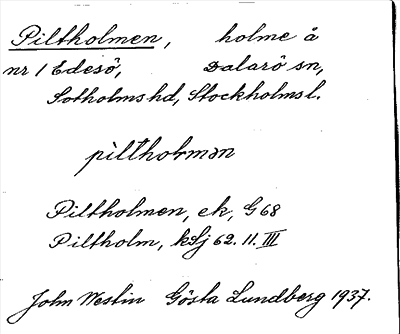 Piltholmen, holme å
nr 1 Edesö, Dalarö sn,
Sotholms hd, Stockholms l.
pìltholmən
Piltholmen, ek, G 68
Piltholm, hSj 62. 11. III
John Westin Gösta Lundberg 1937.